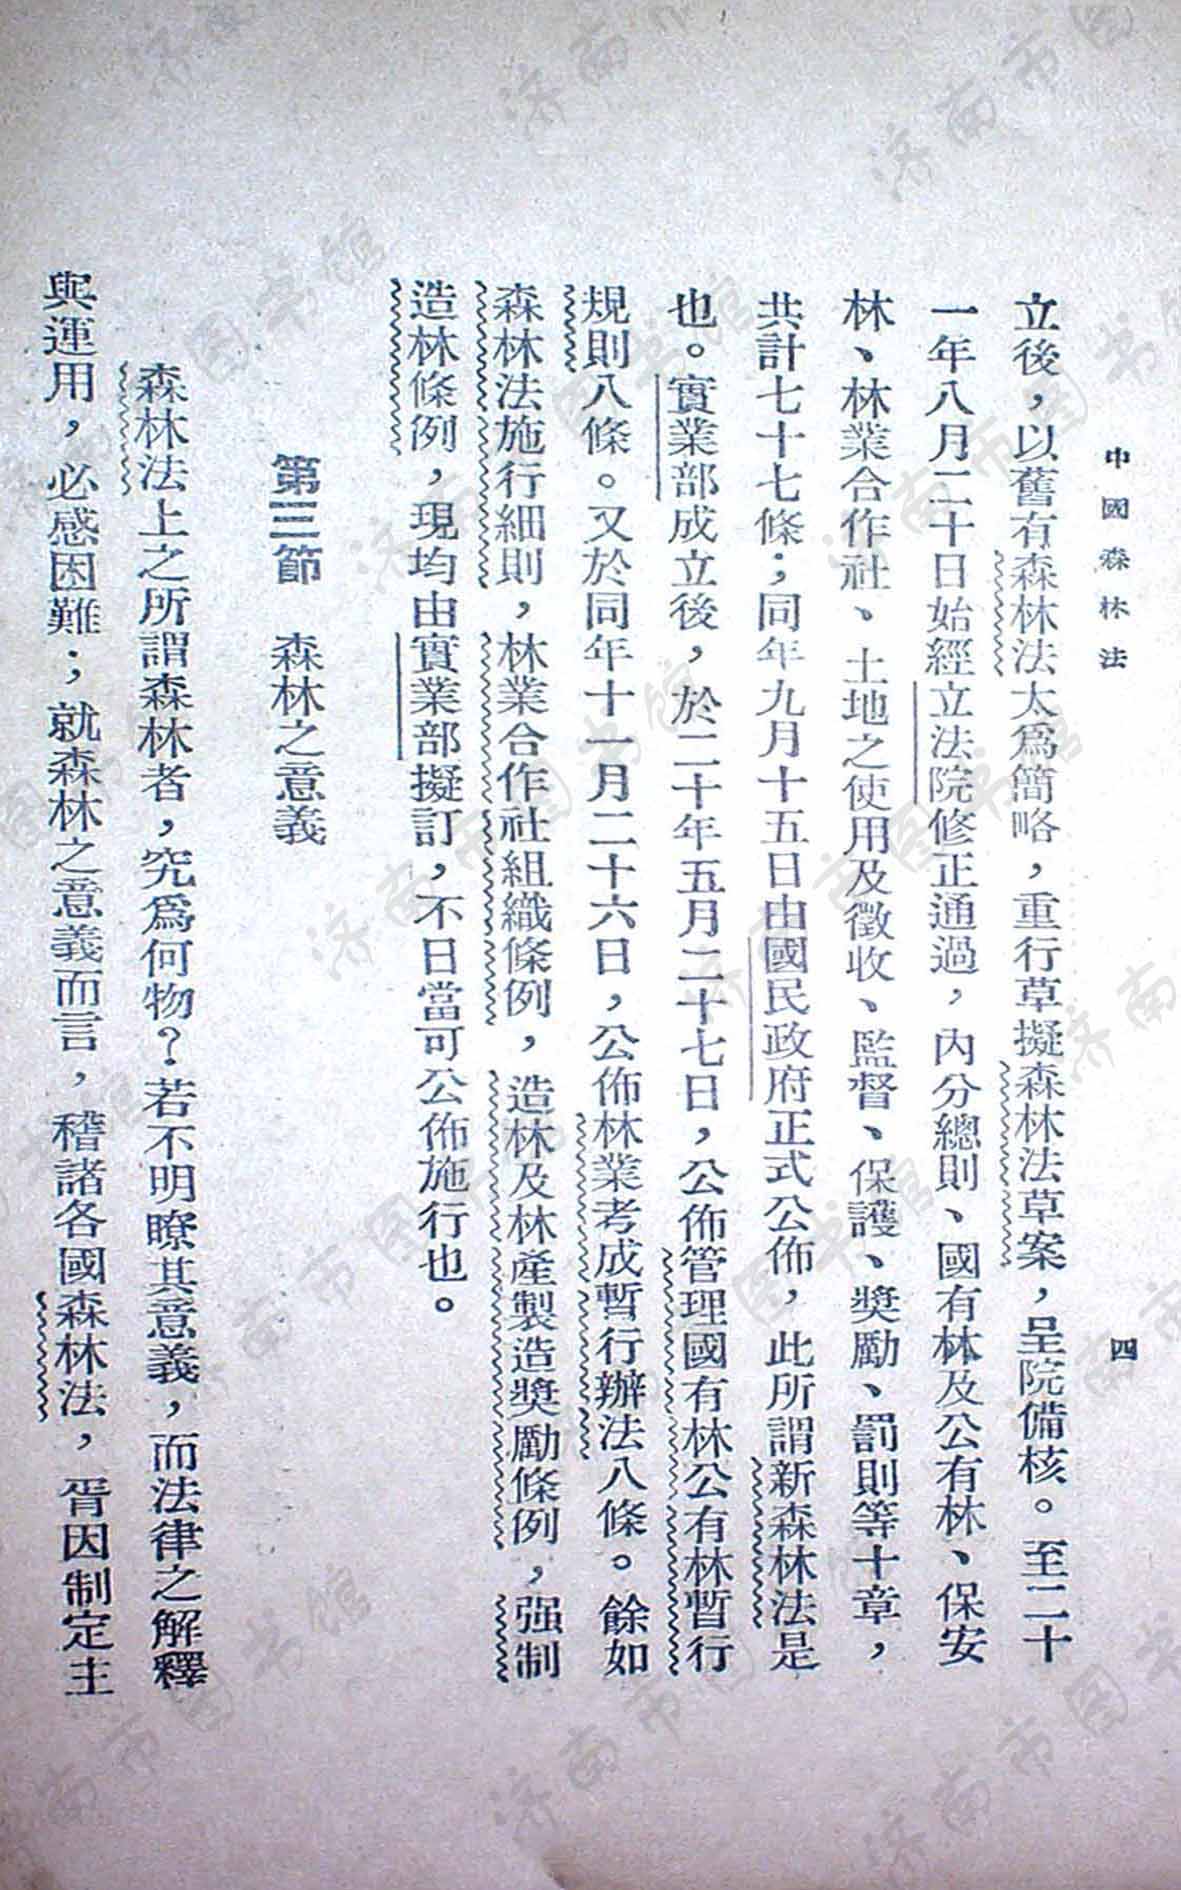 中國森林法
四
立後，以舊有森林法太爲簡略，重行草擬森林法草案，呈院備核。至二十
一年八月二十日始經立法院修正通過，內分總則、國有林及公有林、保安
林、林業合作社、土地之使用及徵收、監督、保護、獎勵、罰則等十章，
共計七十七條；同年九月十五日由國民政府正式公佈，此所謂新森林法是
也。實業部成立後，於二十年五月二十七日，公佈管理國有林公有林暫行
規則八條。又於同年十一月二十六日，公佈林業考成暫行辦法八條。餘如
森林法施行細則，林業合作社組織條例，造林及林產製造獎勵條例，强制
造林條例，現均由實業部擬訂，不日當可公佈施行也。
第三節　森林之意義
森林法上之所謂森林者，究爲何物？若不明瞭其意義，而法律之解釋
與運用，必感困難；就森林之意義而言，稽諸各國森林法，胥因制定主
济南市图书馆